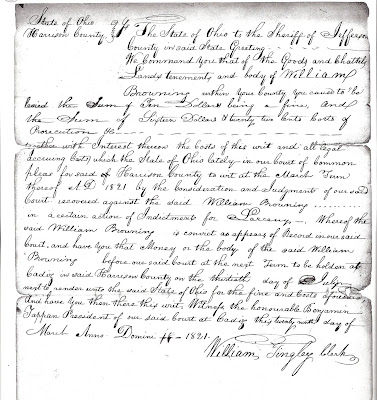 State of Ohio
Harrison County
The State of Ohio to the Sheriff of Jefferson
County in said State Greeting
We Command you that of the Goods and Chattels
Lands tenements and body of William
Browning within your County you caused to be
levied the Sum of Ten Dollars being a fine, and
the Sum of Sixteen Dollars & twenty two Cents Costs of
Prosecution &c
together with Interest thereon the Costs of this writ and all legal
accruing Costs which the State of Ohio lately in our Court of Common
pleas for said Harrison County to wit at the March Term
thereof A D 1821 by the Consideration and Judgments of our said
Court recovered against the said William Browning
in a certain action of Indictment for Larceny Whereof the
said William Browning is convict as appears of Record in our said
Court, and have you that Money or the body of the said William
Browning before our said Court at the next Term to be holden at
Cadiz in said Harrison County on the thirtieth day of July
next to render unto the said State of Ohio for the fine and Costs aforesaid
And have you then there this writ, Witness the honourable Benjamin
Tappan President of our said Court at Cadiz this twenty ninth day of
March Anno Domini 1821
William Tingley Clerk